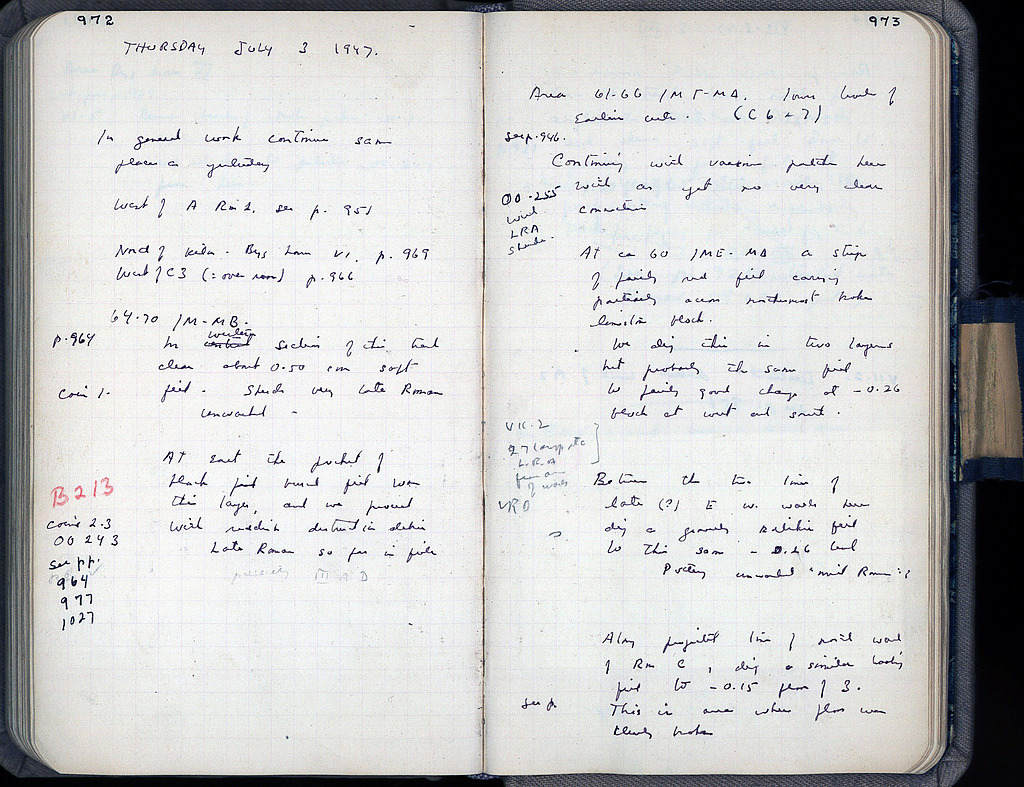 972
THURSDAY JULY 3 1947.
In general work continues same
place as yesterday
West of A Rm 2, see p. 951
North of kiln - Byz. p. 969
West of C3 (= over room) p. 966
64-70 / M - MB.
p. 964
In central western section of this
clear about 0.50 cm soft
Coin 1.
fill - Sherds very late Roman
uncounted -
At East the pocket of
black fill
B 213
this layer, and we proceed
Coins 2.3
with reddish destruction debris
00 243
Late Roman so far in
see pp.
possibly III AD
964
977
1027
973
Area 61-66 / MF-MA. lower levels of
Earlier (C 6 + 7)
see p. 946.
Continuing with various patches here
with as yet no very clear
00 255
connection
with
LRA
sherds.
At ca 60 / ME-MA a strip
of fairly red fill
partially across northernmost broken
limestone block.
We dig this in two layers
but probably the same fill
to fairly good change at - 0.26
block at west and south.
VII-2
27 lamps etc
L.R.A
from area
of wells
Between the two lines of
LRD
late (?) E W. walls here
dig a gravelly fill
to this same - 0.26 level
Pottery uncounted "mid Roman"?
Along projected line of north wall
of Rm C, dig a similar looking
fill to - 0.15 floor of 3.
see p.
This is area where floor was
clearly broken